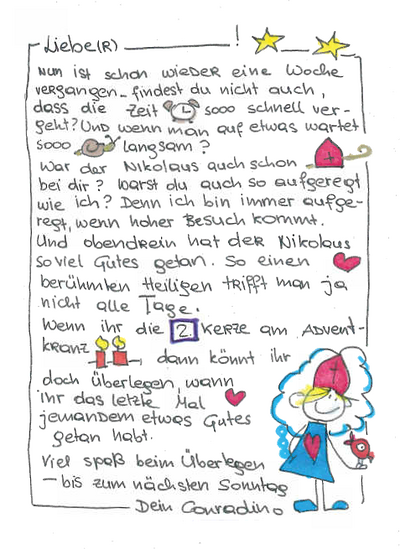 Liebe(r) !
Nun ist schon wieder eine Woche
vergangen.. findest du nicht auch,
dass die Zeit sooo schnell ver-
geht? Und wenn man auf etwas wartet
sooo langsam?
War der Nikolaus auch schon
bei dir? Warst du auch so aufgeregt
wie ich? Denn ich bin immer aufge-
regt, wenn hoher Besuch kommt.
Und obendrein hat der Nikolaus
soviel Gutes getan. So einen
berühmten Heiligen trifft man ja
nicht alle Tage.
Wenn ihr die 2. Kerze am Advent-
kranz dann könnt ihr
doch überlegen, wann
ihr das letzte Mal
jemandem etwas Gutes
getan habt.
Viel Spaß beim Überlegen
– bis zum nächsten Sonntag
Dein Conradino